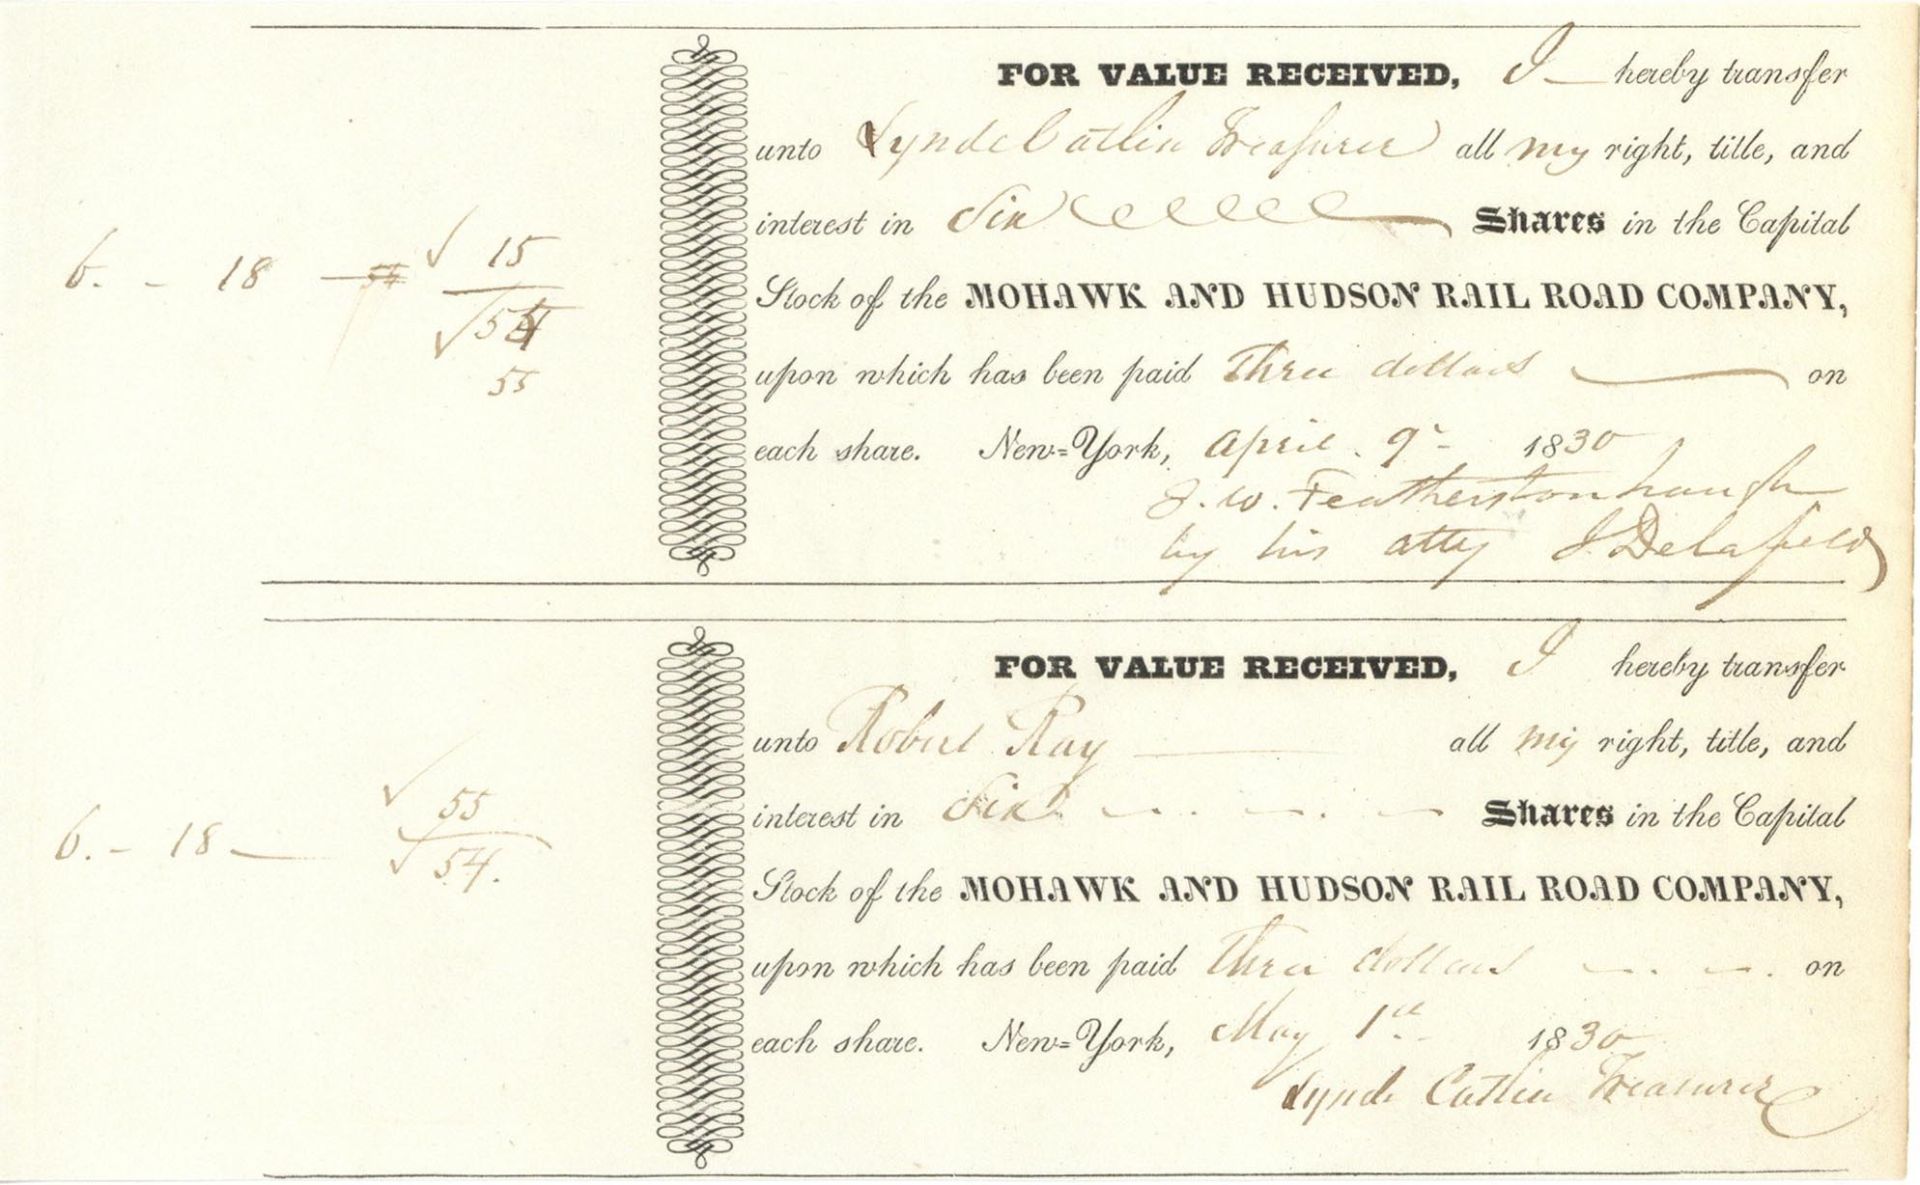 FOR VALUE RECEIVED, I hereby transfer
unto Lynde Catlin Treasurer all my right, title, and
interest in Six Shares in the Capital
Stock of the MOHAWK AND HUDSON RAIL ROAD COMPANY,
upon which has been paid Three dollars on
each share. New=York, April 9th 1830
J. W. Featherstonhaugh
by his atty J Delafield
6. - 18 — 54
√ 15
√ 54
55
FOR VALUE RECEIVED, I hereby transfer
unto Robert Ray all my right, title, and
interest in Six Shares in the Capital
Stock of the MOHAWK AND HUDSON RAIL ROAD COMPANY,
upon which has been paid Three dollars on
each share. New=York, May 1st 1830
Lynde Catlin Treasurer
6. - 18 —
√ 55
√ 54.